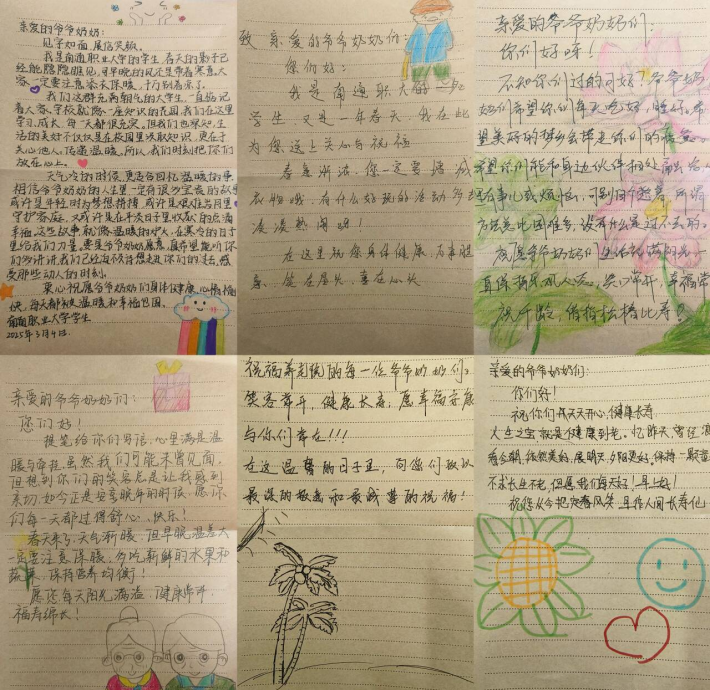 亲爱的爷爷奶奶:
见字如面,展信笑颜。
我是南通职业大学的学生,春天的影子已
经能隐隐瞧见,可早晚的风还是带着寒意,大
家一定要注意添衣保暖,千万别着凉了。
我们这群充满朝气的大学生,一直惦记
着大家。学校就像一座知识的花园,我们在这里
学习、成长,每一天都很充实。但我们也深知,生
活的美好不仅仅是在校园里汲取知识,更在于
关心他人、传递温暖。所以,我们时刻把你们
放在心上。
天气冷的时候,更适合回忆温暖的事。
相信爷爷奶奶的人生里一定有很多宝贵的故事,
或许是年轻时为梦想拼搏,或许是艰难岁月里
守护家庭,又或许是在平淡日子里收获的点滴
幸福。这些故事就像温暖的炉火,在寒冷的日子
里给我们力量。要是爷爷奶奶愿意,真希望能听你
们多讲讲,我们已迫不及待想走进你们的过去,感
受那些动人的时刻。
衷心祝愿爷爷奶奶们身体健康、心情愉
快,每天都被温暖和幸福包围。
南通职业大学学生
2025年3月4日
致亲爱的爷爷奶奶们:
您们好:
我是南通职大的一如
学生,又是一年春天,我在此
为您送上关心与祝福
春寒渐浓,您一定要
衣物哦,有什么好玩的活动多去
凑凑热闹哟!
在这里祝您身体健康,万事胜
意,笑在眉头,喜在心头
亲爱的爷爷奶奶们:
你们好呀!
不知你们过的可好?爷爷奶
奶们希望你们每天吃好,睡好,希
望美好的
希望你们能和身边伙伴相处融洽,
事儿或烦恼,可别闷着,所谓
方法总比困难多,没有什么是过不去的。
祝愿爷爷奶奶们生活充满阳光,一
直保持
笑口常开,幸福常
松椿比寿!
亲爱的爷爷奶奶们:
您们好!
提笔给你们写信,心里满是温
暖与牵挂。虽然我们可能未曾见面,
但想到你们的笑容总是让我感到
亲切,如今正是安享晚年的时候,愿你
们每一天都过得舒心、快乐!
春天来了,天气渐暖,但早晚温差大
一定要注意保暖,多吃新鲜的水果和
蔬菜,保持营养均衡!
愿您每天阳光满溢,健康常开
福寿绵长!
祝福养老院的每一位爷爷奶奶们:
笑容常开,健康长寿,愿幸福安康
与你们常在!!!
在这温馨的日子里,向您们致以
最深的敬意和最诚挚的祝福!
亲爱的爷爷奶奶们:
你们好!
祝你们天天开心,健康长寿
人生之宝就是健康到老。忆昨天,
看今朝,依然美好,展明天,夕阳更好。保持一颗童
不求长生不老,但愿我们每天好!早上好!
祝您从今把定春风笑,且作人间长寿仙